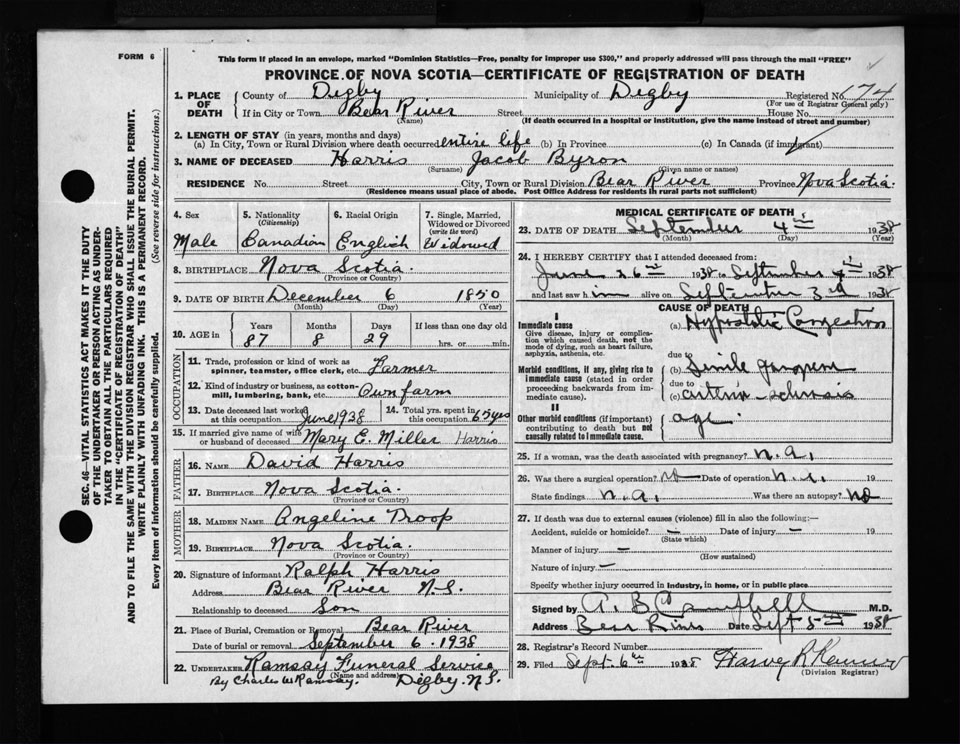 FORM 6
This form if placed in an envelope, marked "Dominion Statistics—Free, penalty for improper use $300," and properly addressed will pass through the mail "FREE"
PROVINCE OF NOVA SCOTIA—CERTIFICATE OF REGISTRATION OF DEATH
SEC. 46—VITAL STATISTICS ACT MAKES IT THE DUTY
OF THE UNDERTAKER OR PERSON ACTING AS UNDER-
TAKER TO OBTAIN ALL THE PARTICULARS REQUIRED
IN THE "CERTIFICATE OF REGISTRATION OF DEATH"
AND TO FILE THE SAME WITH THE DIVISION REGISTRAR WHO SHALL ISSUE THE BURIAL PERMIT.
WRITE PLAINLY WITH UNFADING INK. THIS IS A PERMANENT RECORD.
Every item of information should be carefully supplied. (See reverse side for instructions.)
1. PLACE OF DEATH
County of Digby Municipality of Digby Registered No. 174
(For use of Registrar General only)
If in City or Town Bear River Street House No.
(Name) (If death occurred in a hospital or institution, give the name instead of street and number)
2. LENGTH OF STAY (in years, months and days)
(a) In City, Town or Rural Division where death occurred entire life (b) In Province (c) In Canada (if immigrant)
3. NAME OF DECEASED Harris Jacob Byron
(Surname) (Given name or names)
RESIDENCE No. Street City, Town or Rural Division Bear River Province Nova Scotia.
(Residence means usual place of abode. Post Office Address for residents in rural parts not sufficient)
4. Sex 5. Nationality (Citizenship) 6. Racial Origin 7. Single, Married, Widowed or Divorced (write the word)
Male Canadian English Widowed
8. BIRTHPLACE Nova Scotia.
(Province or Country)
9. DATE OF BIRTH December 6 1850
(Month) (Day) (Year)
10. AGE in Years Months Days If less than one day old
87 8 29 hrs. or min.
OCCUPATION
11. Trade, profession or kind of work as spinner, teamster, office clerk, etc. Farmer
12. Kind of industry or business, as cotton-mill, lumbering, bank, etc. Own farm
13. Date deceased last worked at this occupation June 1938 14. Total yrs. spent in this occupation 65 yrs
15. If married give name of wife or husband of deceased Mary E. Miller Harris
FATHER
16. NAME David Harris
17. BIRTHPLACE Nova Scotia.
(Province or Country)
MOTHER
18. MAIDEN NAME Angeline Troop
19. BIRTHPLACE Nova Scotia.
(Province or Country)
20. Signature of informant Ralph Harris
Address Bear River N.S.
Relationship to deceased Son
21. Place of Burial, Cremation or Removal Bear River
Date of burial or removal September 6. 1938
22. UNDERTAKER Ramsay Funeral Service
(Name and address)
By Charles W. Ramsay. Digby. N.S.
MEDICAL CERTIFICATE OF DEATH
23. DATE OF DEATH September 4th 1938
(Month) (Day) (Year)
24. I HEREBY CERTIFY that I attended deceased from:
June 26th 1938 to September 4th 1938
and last saw him alive on September 3rd 1938
CAUSE OF DEATH
I
Immediate cause
Give disease, injury or complication which caused death, not the mode of dying, such as heart failure, asphyxia, asthenia, etc.
(a) Hypostatic Congestion
due to
Morbid conditions, if any, giving rise to immediate cause (stated in order proceeding backwards from immediate cause).
(b) Senile gangrene
due to
(c)
II
Other morbid conditions (if important) contributing to death but not causally related to immediate cause.
age.
25. If a woman, was the death associated with pregnancy? n.a.
26. Was there a surgical operation? Date of operation n.a. 19
State findings n.a. Was there an autopsy? No
27. If death was due to external causes (violence) fill in also the following:—
Accident, suicide or homicide? — Date of injury — 19
(State which)
Manner of injury —
(How sustained)
Nature of injury —
Specify whether injury occurred in industry, in home, or in public place
Signed by A. B. Campbell M.D.
Address Bear River Date Sept 5th 1938
28. Registrar's Record Number
29. Filed Sept. 6th 1938 Harvey R.
(Division Registrar)